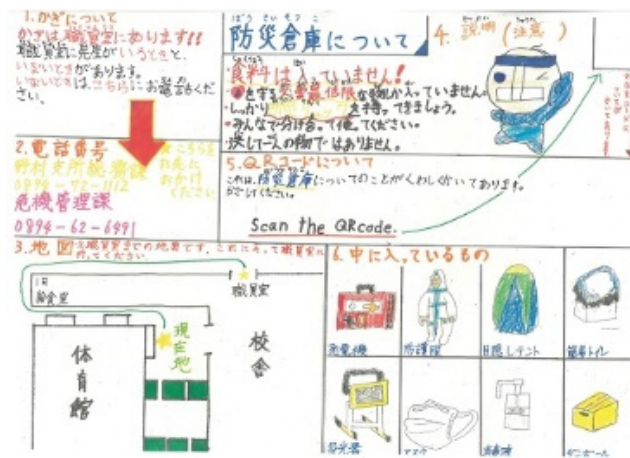 1.かぎについて
かぎは職員室にあります!!
職員室に先生がいるときと、
いないときがあります。
いないときは、こちらにお電話くだ
さい。
2.電話番号
野村支所総務課
0894-72-1112
危機管理課
0894-62-6491
★こちらを
お先に
おかけ
ください
防災倉庫について
ぼうさいそうこ
食料は入っていません!
な物しか入っていません。
・しっかり
を持ってきましょう。
・みんなで分け合って使ってください。
決して一人の物ではありません。
4.説明(注意)
5.QRコードについて
これは、防災倉庫についてのことがくわしくかいてあります。
Scan the QRcode.
3.地図
職員室までの地図です。これにそって職員室に
行ってください。
1F
給食室
職員室
現在地
体育館
校舎
6.中に入っているもの
発電機
防護服
目隠しテント
簡易トイレ
投光器
マスク
消毒液
ダンボール